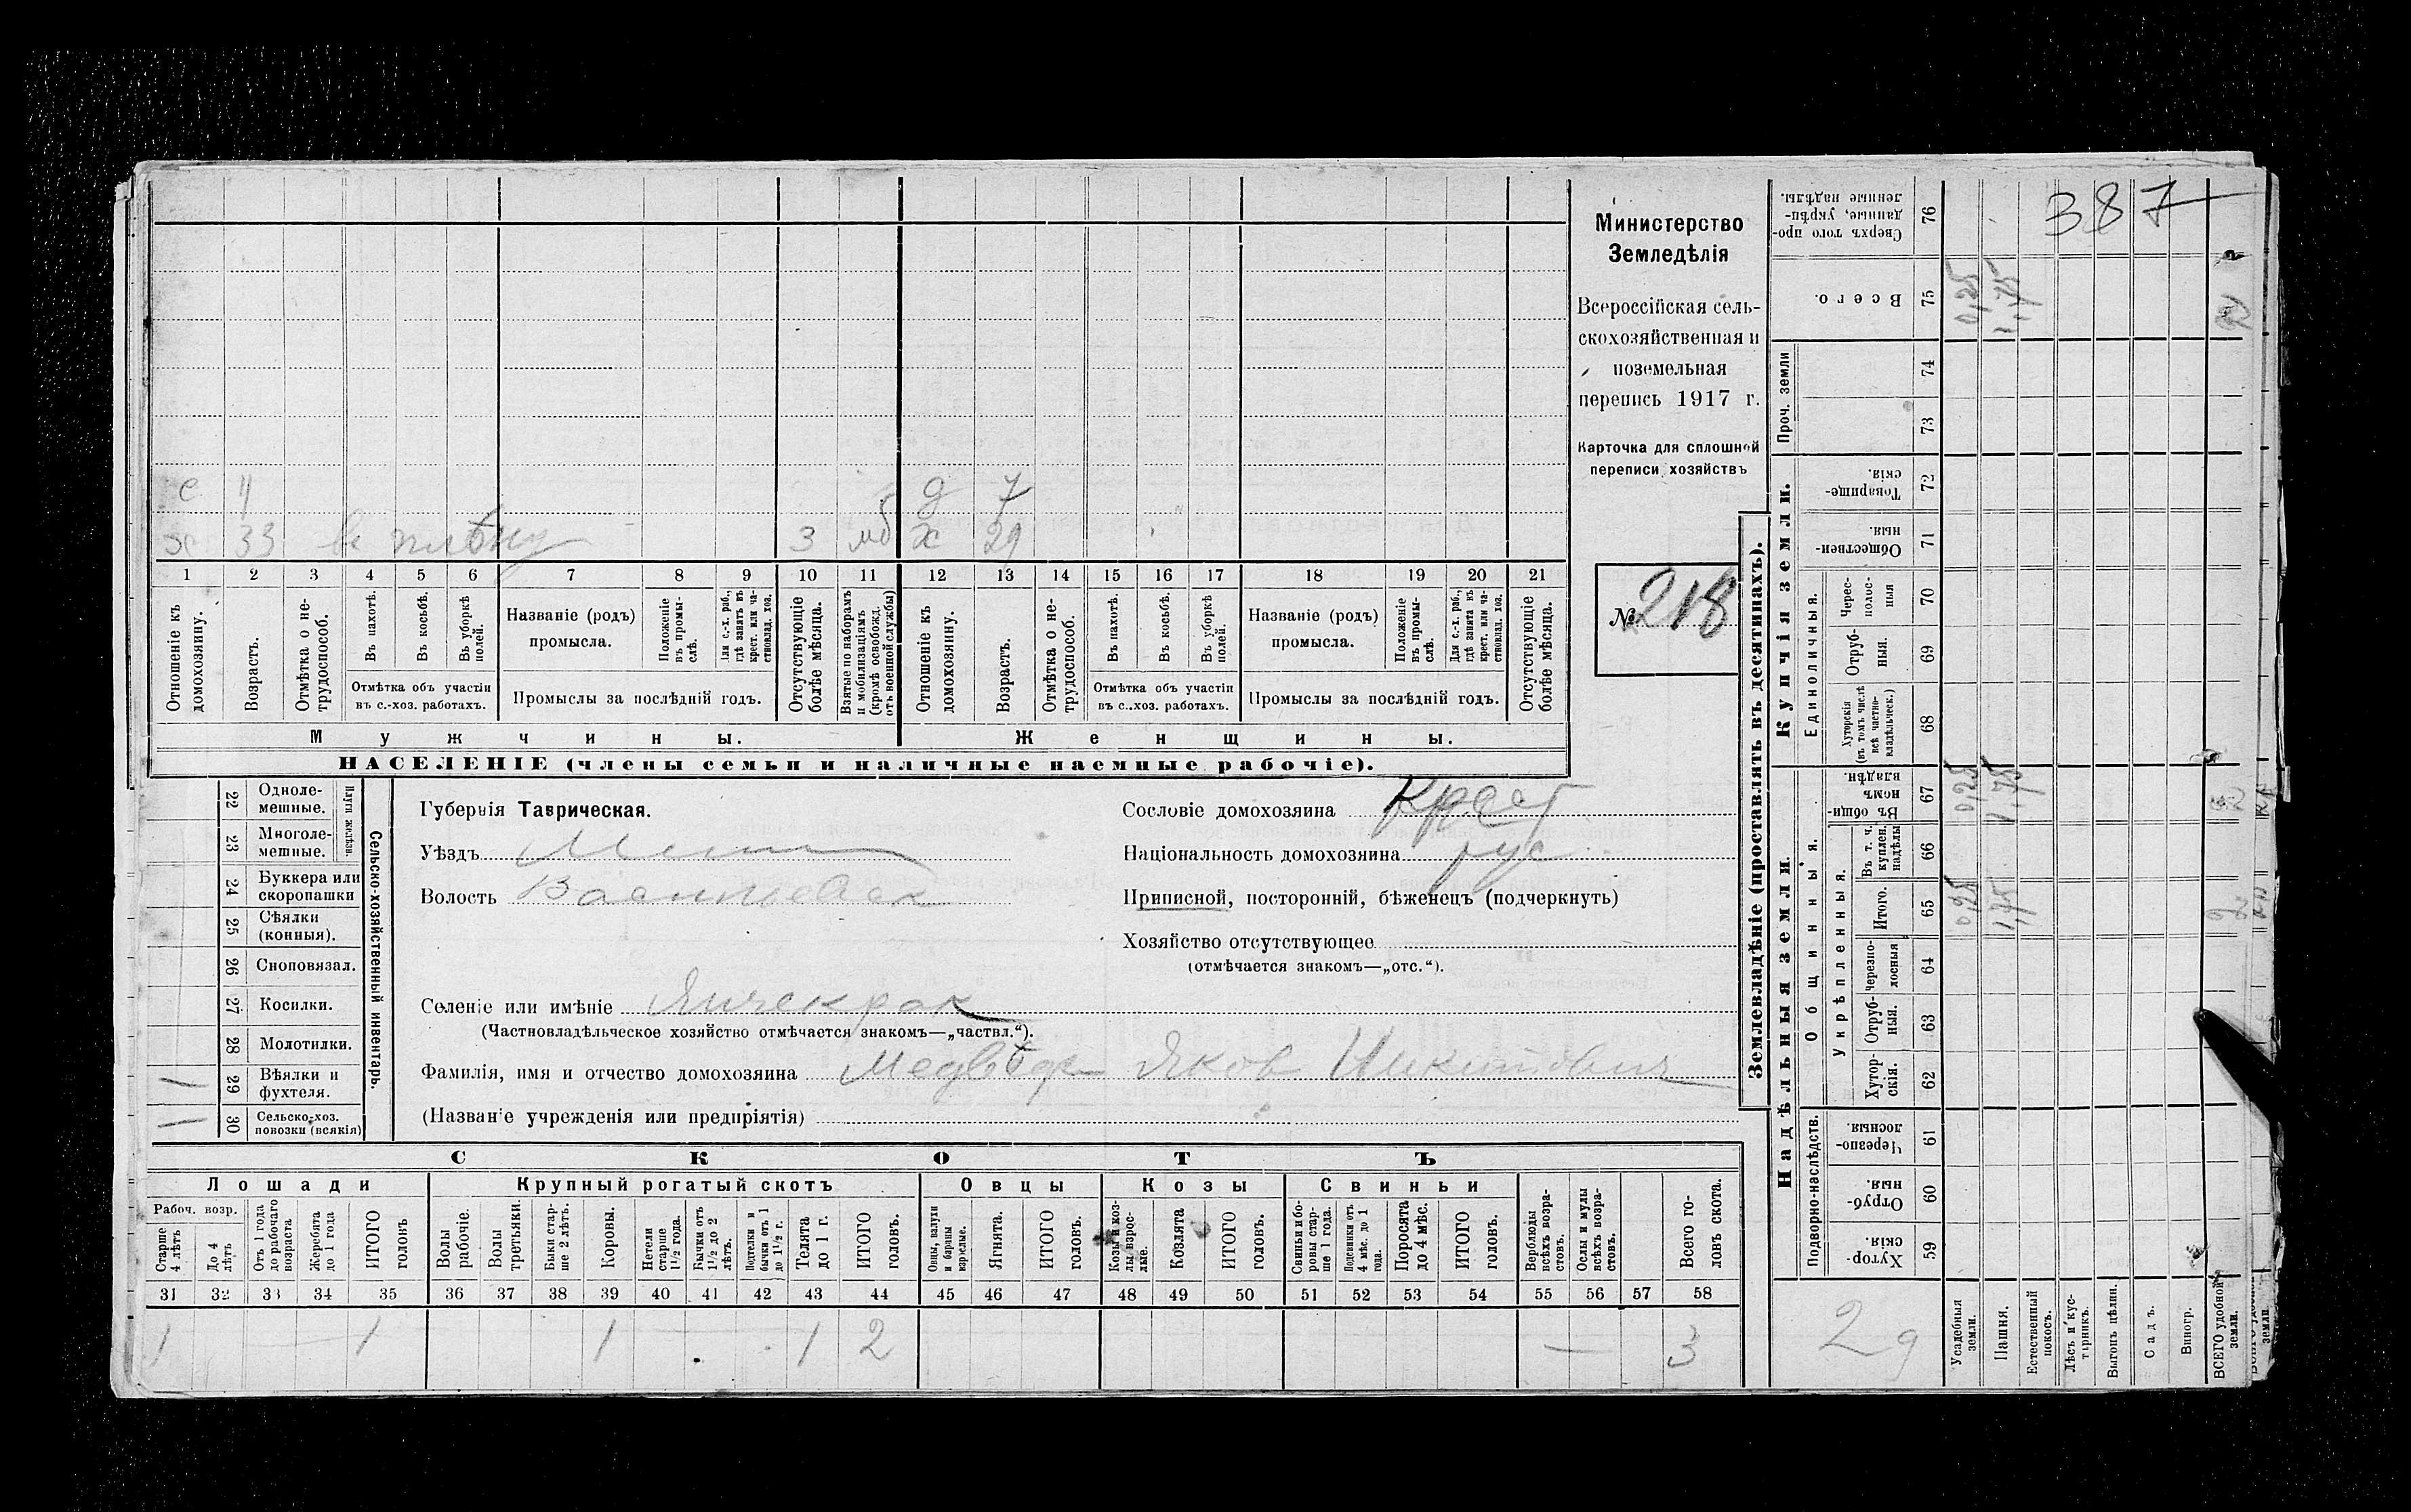 387
Министерство
Земледѣлія
Всероссійская сель-
скохозяйственная и
поземельная
перепись 1917 г.
Карточка для сплошной
переписи хозяйствъ
№ 218
с 11 д 7
х 33 в плѣну 3 мб х 29
1 2 3 4 5 6 7 8 9 10 11 12 13 14 15 16 17 18 19 20 21
Отношеніе къ домохозяину.
Возрастъ.
Отмѣтка о не-трудоспособ.
Въ пахотѣ.
Въ косьбѣ.
Въ уборкѣ полей.
Отмѣтка объ участіи
въ с.-хоз. работахъ.
Названіе (родъ)
промысла.
Положеніе въ промы-слѣ.
Для с.-х. раб., гдѣ занятъ въ крест. или ча-стновлад. хоз.
Промыслы за послѣдній годъ.
Отсутствующіе болѣе мѣсяца.
Взятые по наборамъ и мобилизаціямъ (кромѣ освобожд. отъ военной службы)
Отношеніе къ домохозяину.
Возрастъ.
Отмѣтка о не-трудоспособ.
Въ пахотѣ.
Въ косьбѣ.
Въ уборкѣ полей.
Отмѣтка объ участіи
въ с.-хоз. работахъ.
Названіе (родъ)
промысла.
Положеніе въ промы-слѣ.
Для с.-х. раб., гдѣ занята въ крест. или ча-стновлад. хоз.
Промыслы за послѣдній годъ.
Отсутствующіе болѣе мѣсяца.
Мужчины. Женщины.
НАСЕЛЕНІЕ (члены семьи и наличные наемные рабочіе).
22 Одноле-мешные.
23 Многоле-мешные.
Плуги желѣзн.
24 Буккера или скоропашки
25 Сѣялки (конныя).
26 Сноповязал.
27 Косилки.
28 Молотилки.
1 29 Вѣялки и фухтеля.
1 30 Сельско-хоз. повозки (всякія)
Сельско-хозяйственный инвентарь.
Губернія Таврическая.
Уѣздъ Мелит
Волость Васильевск
Селеніе или имѣніе Янчекрак
(Частновладѣльческое хозяйство отмѣчается знакомъ—„частвл.“).
Фамилія, имя и отчество домохозяина Медвѣдь Яков Никитович
(Названіе учрежденія или предпріятія)
Сословіе домохозяина Крест
Національность домохозяина рус
Приписной, посторонній, бѣженецъ (подчеркнуть)
Хозяйство отсутствующее
(отмѣчается знакомъ—„отс.“).
СКОТЪ
Лошади Крупный рогатый скотъ Овцы Козы Свиньи
Рабоч. возр.
Старше 4 лѣтъ
До 4 лѣтъ
Отъ 1 года до рабочаго возраста
Жеребята до 1 года
ИТОГО головъ
Волы рабочіе.
Волы третьяки.
Быки стар-ше 2 лѣтъ.
Коровы.
Нетели старше 1½ года.
Бычки отъ 1½ до 2 лѣтъ.
Подтелки и бычки отъ 1 до 1½ г.
Телята до 1 г.
ИТОГО головъ.
Овцы, валухи и бараны взрослые.
Ягнята.
ИТОГО головъ.
Козы и коз-лы взрос-лые.
Козлята
ИТОГО головъ.
Свиньи и бо-ровы стар-ше 1 года.
Подсвинки отъ 4 мѣс. до 1 года.
Поросята до 4 мѣс.
ИТОГО головъ.
Верблюды всѣхъ возра-стовъ.
Ослы и мулы всѣхъ возра-стовъ.
Всего го-ловъ скота.
31 32 33 34 35 36 37 38 39 40 41 42 43 44 45 46 47 48 49 50 51 52 53 54 55 56 57 58
1 1 1 1 2 — 3
Землевладѣніе (проставлять въ десятинахъ).
Надѣльныя земли.
Купчія земли.
Проч. земли
Подворно-наслѣдств.
Общинныя.
Укрѣпленныя.
Единоличныя.
Сверхъ того про-данные, укрѣп-ленные надѣлы. 76
Всего. 75 0,25 1,75
74
73
Товарище-скія. 72
Обществен-ныя. 71
Черес-полос-ныя 70
Отруб-ныя. 69
Хуторскія (въ томъ числѣ всѣ частно-владѣльческ.) 68
Въ общин-номъ владѣн. 67 0,25 1,75
Въ т. ч. куплен. надѣлы 66
Итого. 65 0,25 1,75
Черезпо-лосныя 64
Отруб-ныя. 63
Хутор-скія. 62
Черезпо-лосныя. 61
Отруб-ныя. 60
Хутор-скія. 59
2 д
Усадебныя земли.
Пашня.
Естественный покосъ.
Лѣсъ и кус-тарникъ.
Выгонъ цѣлин.
Садъ.
Виногр.
ВСЕГО удобной земли.